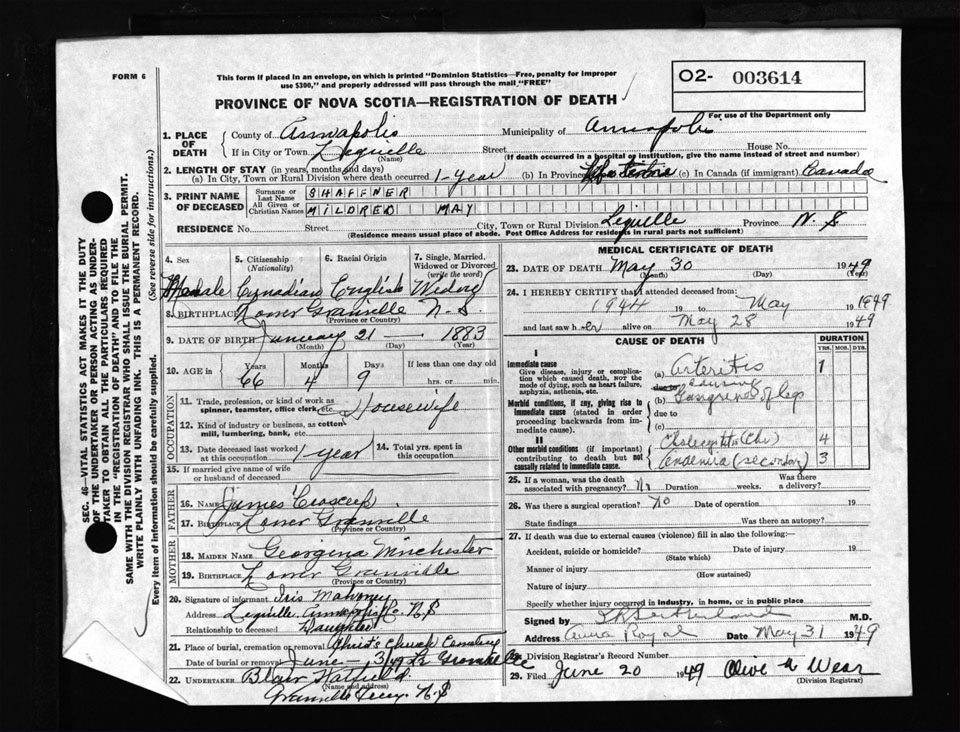 FORM 6
This form if placed in an envelope, on which is printed "Dominion Statistics—Free, penalty for improper
use $300," and properly addressed will pass through the mail "FREE"
O2- 003614
For use of the Department only
PROVINCE OF NOVA SCOTIA—REGISTRATION OF DEATH
1. PLACE OF DEATH County of Annapolis Municipality of Annapolis
If in City or Town Lequille (Name) Street House No.
(If death occurred in a hospital or institution, give the name instead of street and number)
2. LENGTH OF STAY (in years, months and days)
(a) In City, Town or Rural Division where death occurred 1-year (b) In Province (c) In Canada (if immigrant) Canada
3. PRINT NAME OF DECEASED Surname or Last Name SHAFFNER
All Given or Christian Names MILDRED MAY
RESIDENCE No. Street City, Town or Rural Division Lequille Province N.S
(Residence means usual place of abode. Post Office Address for residents in rural parts not sufficient)
4. Sex 5. Citizenship (Nationality) 6. Racial Origin 7. Single, Married, Widowed or Divorced (write the word)
Canadian English
8. BIRTHPLACE Lower Granville N.S.
(Province or Country)
9. DATE OF BIRTH January 21 1883
(Month) (Day) (Year)
10. AGE in Years Months Days If less than one day old
66 4 9 hrs. or min.
OCCUPATION
11. Trade, profession, or kind of work as spinner, teamster, office clerk, etc. Housewife
12. Kind of industry or business, as cotton mill, lumbering, bank, etc.
13. Date deceased last worked at this occupation 1 year 14. Total yrs. spent in this occupation
15. If married give name of wife or husband of deceased
FATHER
16. NAME James
17. BIRTHPLACE Lower Granville
(Province or Country)
MOTHER
18. MAIDEN NAME Georgina Winchester
19. BIRTHPLACE Lower Granville
(Province or Country)
20. Signature of informant Iris Mahoney
Address Lequille Annapolis Co. N.S
Relationship to deceased Daughter
21. Place of burial, cremation or removal Christ's Church Cemetery
Date of burial or removal June
22. UNDERTAKER Blair Hatfield
(Name and address)
Granville Ferry N.S
MEDICAL CERTIFICATE OF DEATH
23. DATE OF DEATH May 30 1949
(Month) (Day) (Year)
24. I HEREBY CERTIFY that I attended deceased from:
1944 19 to May 1949
and last saw h er alive on May 28 1949
CAUSE OF DEATH DURATION
YRS. MOS. DYS.
I
Immediate cause (a) Arteritis 1
Give disease, injury or complication which caused death, not the mode of dying, such as heart failure, asphyxia, asthenia, etc.
causing
Morbid conditions, if any, giving rise to immediate cause (stated in order proceeding backwards from immediate cause).
(b) Gangrene of legs
due to
(c)
II
Other morbid conditions (if important) contributing to death but not causally related to immediate cause.
Cholecystitis (Chr) 4
Anaemia (secondary) 3
25. If a woman, was the death associated with pregnancy? No Duration weeks. Was there a delivery?
26. Was there a surgical operation? No Date of operation 19
State findings Was there an autopsy?
27. If death was due to external causes (violence) fill in also the following:—
Accident, suicide or homicide? Date of injury 19
(State which)
Manner of injury
(How sustained)
Nature of injury
Specify whether injury occurred in industry, in home, or in public place
Signed by M.D.
Address Anna Royal Date May 31 1949
28. Division Registrar's Record Number
29. Filed June 20 1949 Olive
(Division Registrar)
SEC. 46—VITAL STATISTICS ACT MAKES IT THE DUTY
OF THE UNDERTAKER OR PERSON ACTING AS UNDER-
TAKER TO OBTAIN ALL THE PARTICULARS REQUIRED
IN THE "REGISTRATION OF DEATH" AND TO FILE THE
SAME WITH THE DIVISION REGISTRAR WHO SHALL ISSUE THE BURIAL PERMIT.
WRITE PLAINLY WITH UNFADING INK. THIS IS A PERMANENT RECORD.
Every item of information should be carefully supplied. (See reverse side for instructions.)